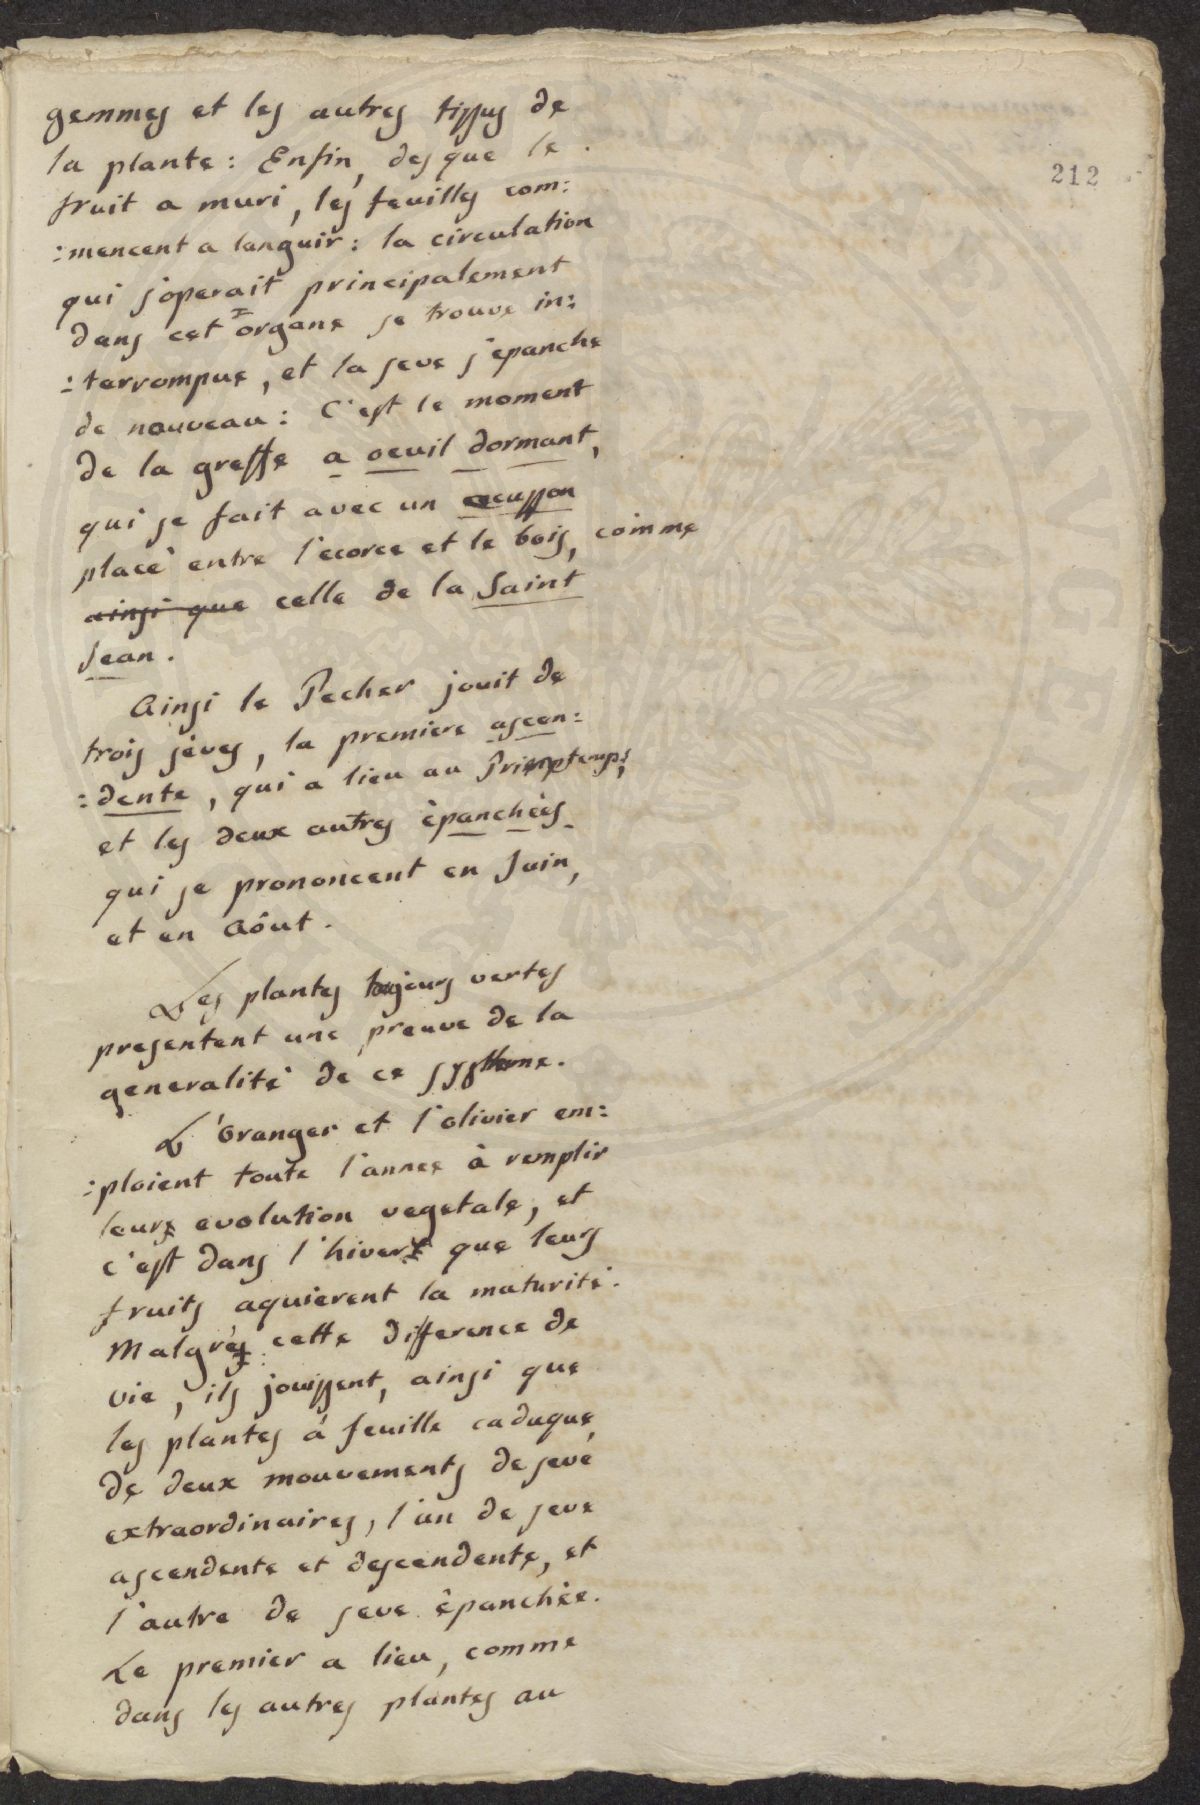 212
gemmes et les autres tissus de
la plante : Enfin, des que le
fruit a muri, les feuilles com:
:mencent a languir : la circulation
qui s'operait principalement
dans cet organe se trouve in:
:terrompue, et la seve s'epanche
de nouveau : C'est le moment
de la greffe a oeuil dormant,
qui se fait avec un ecusson
placé entre l'ecorce et le bois, comme
ainsi que celle de la Saint
Jean.
Ainsi le Pecher jouit de
trois sèves, la premiere ascen:
:dente, qui a lieu au Printemps,
et les deux autres èpanchèes
qui se prononcent en Juin,
et en Aôut.
Les plantes toujours vertes
presentent une preuve de la
generalité de ce systheme.
L'Oranger et l'olivier em:
:ploient toute l'annee à remplir
leur evolution vegetale, et
c'est dans l'hiver que leurs
fruits aquierent la maturité.
Malgrè cette difference de
vie, ils jouissent, ainsi que
les plantes à feuille caduque,
de deux mouvements de seve
extraordinaires, l'un de seve
ascendente et descendente, et
l'autre de seve èpanchèe.
Le premier a lieu, comme
dans les autres plantes au